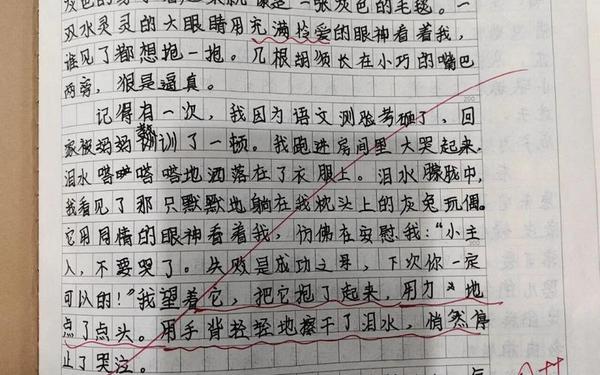 灰色的
一张灰色的毛毯。一
双水灵灵的大眼睛用充满怜爱的眼神看着我,
谁见了都想抱一抱。几根胡须长在小巧的嘴巴
两旁,狠是逼真。
记得有一次,我因为语文测验考砸了,回
家被妈妈教训了一顿。我跑进房间里大哭起来,
泪水嗒嗒嗒地洒落在了衣服上。泪水朦胧中,
我看见了那只默默地躺在我枕头上的灰兔玩偶。
它用同情的眼神看着我,仿佛在安慰我:“小主
人,不要哭了。失败是成功之母,下次你一定
可以的!”我望着它,把它抱了起来,用力地
点了点头。用手背轻轻地擦干了泪水,悄然停
止了哭泣。